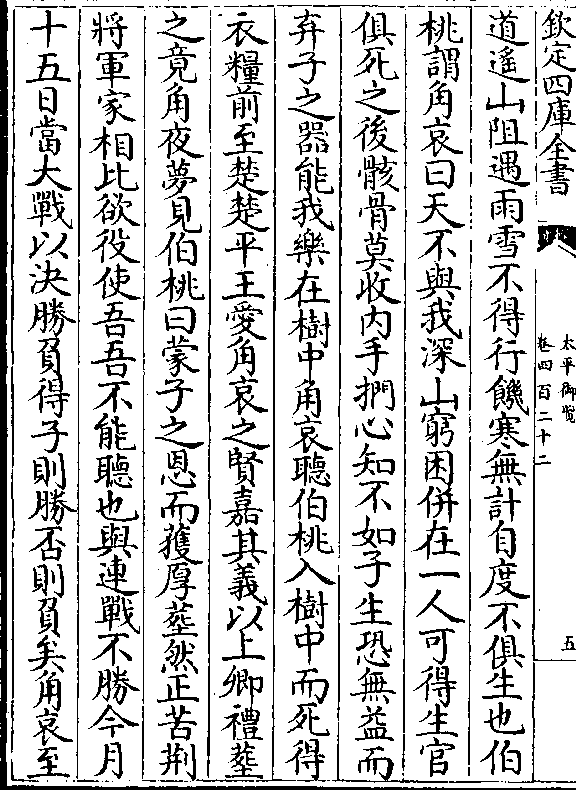 欽定四庫全書
太平御覽
卷四百二十二
五
道遙山阻遇雨雪不得行饑寒無計自度不俱生也伯
桃謂角哀曰天不與我深山窮困併在一人可得生官
俱死之後骸骨莫收内手捫心知不如子生恐無益而
弃子之器能我樂在樹中角哀聽伯桃入樹中而死得
衣糧前至楚楚平王愛角哀之賢嘉其義以上卿禮塟
之竟角夜夢見伯桃曰蒙子之恩而獲厚塟然正苦荆
將軍家相比欲役使吾吾不能聽也與連戰不勝今月
十五日當大戰以決勝負得子則勝否則負矣角哀至